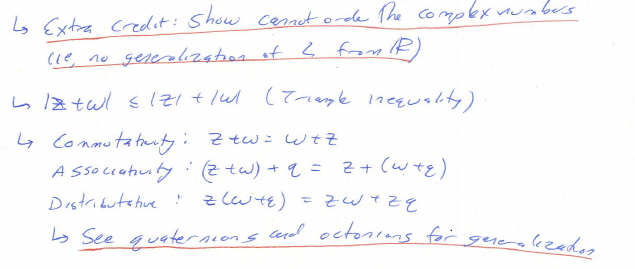 ↳ Extra Credit: Show cannot orde the complex numbers
(ie, no generalization of < from ℝ)
↳ |z+w| ≤ |z| + |w| (Triangle inequality)
↳ Commutativity: z+w = w+z
Associativity: (z+w)+q = z+(w+q)
Distributative: z(w+q) = zw + zq
↳ See quaternions and octonions for generalization